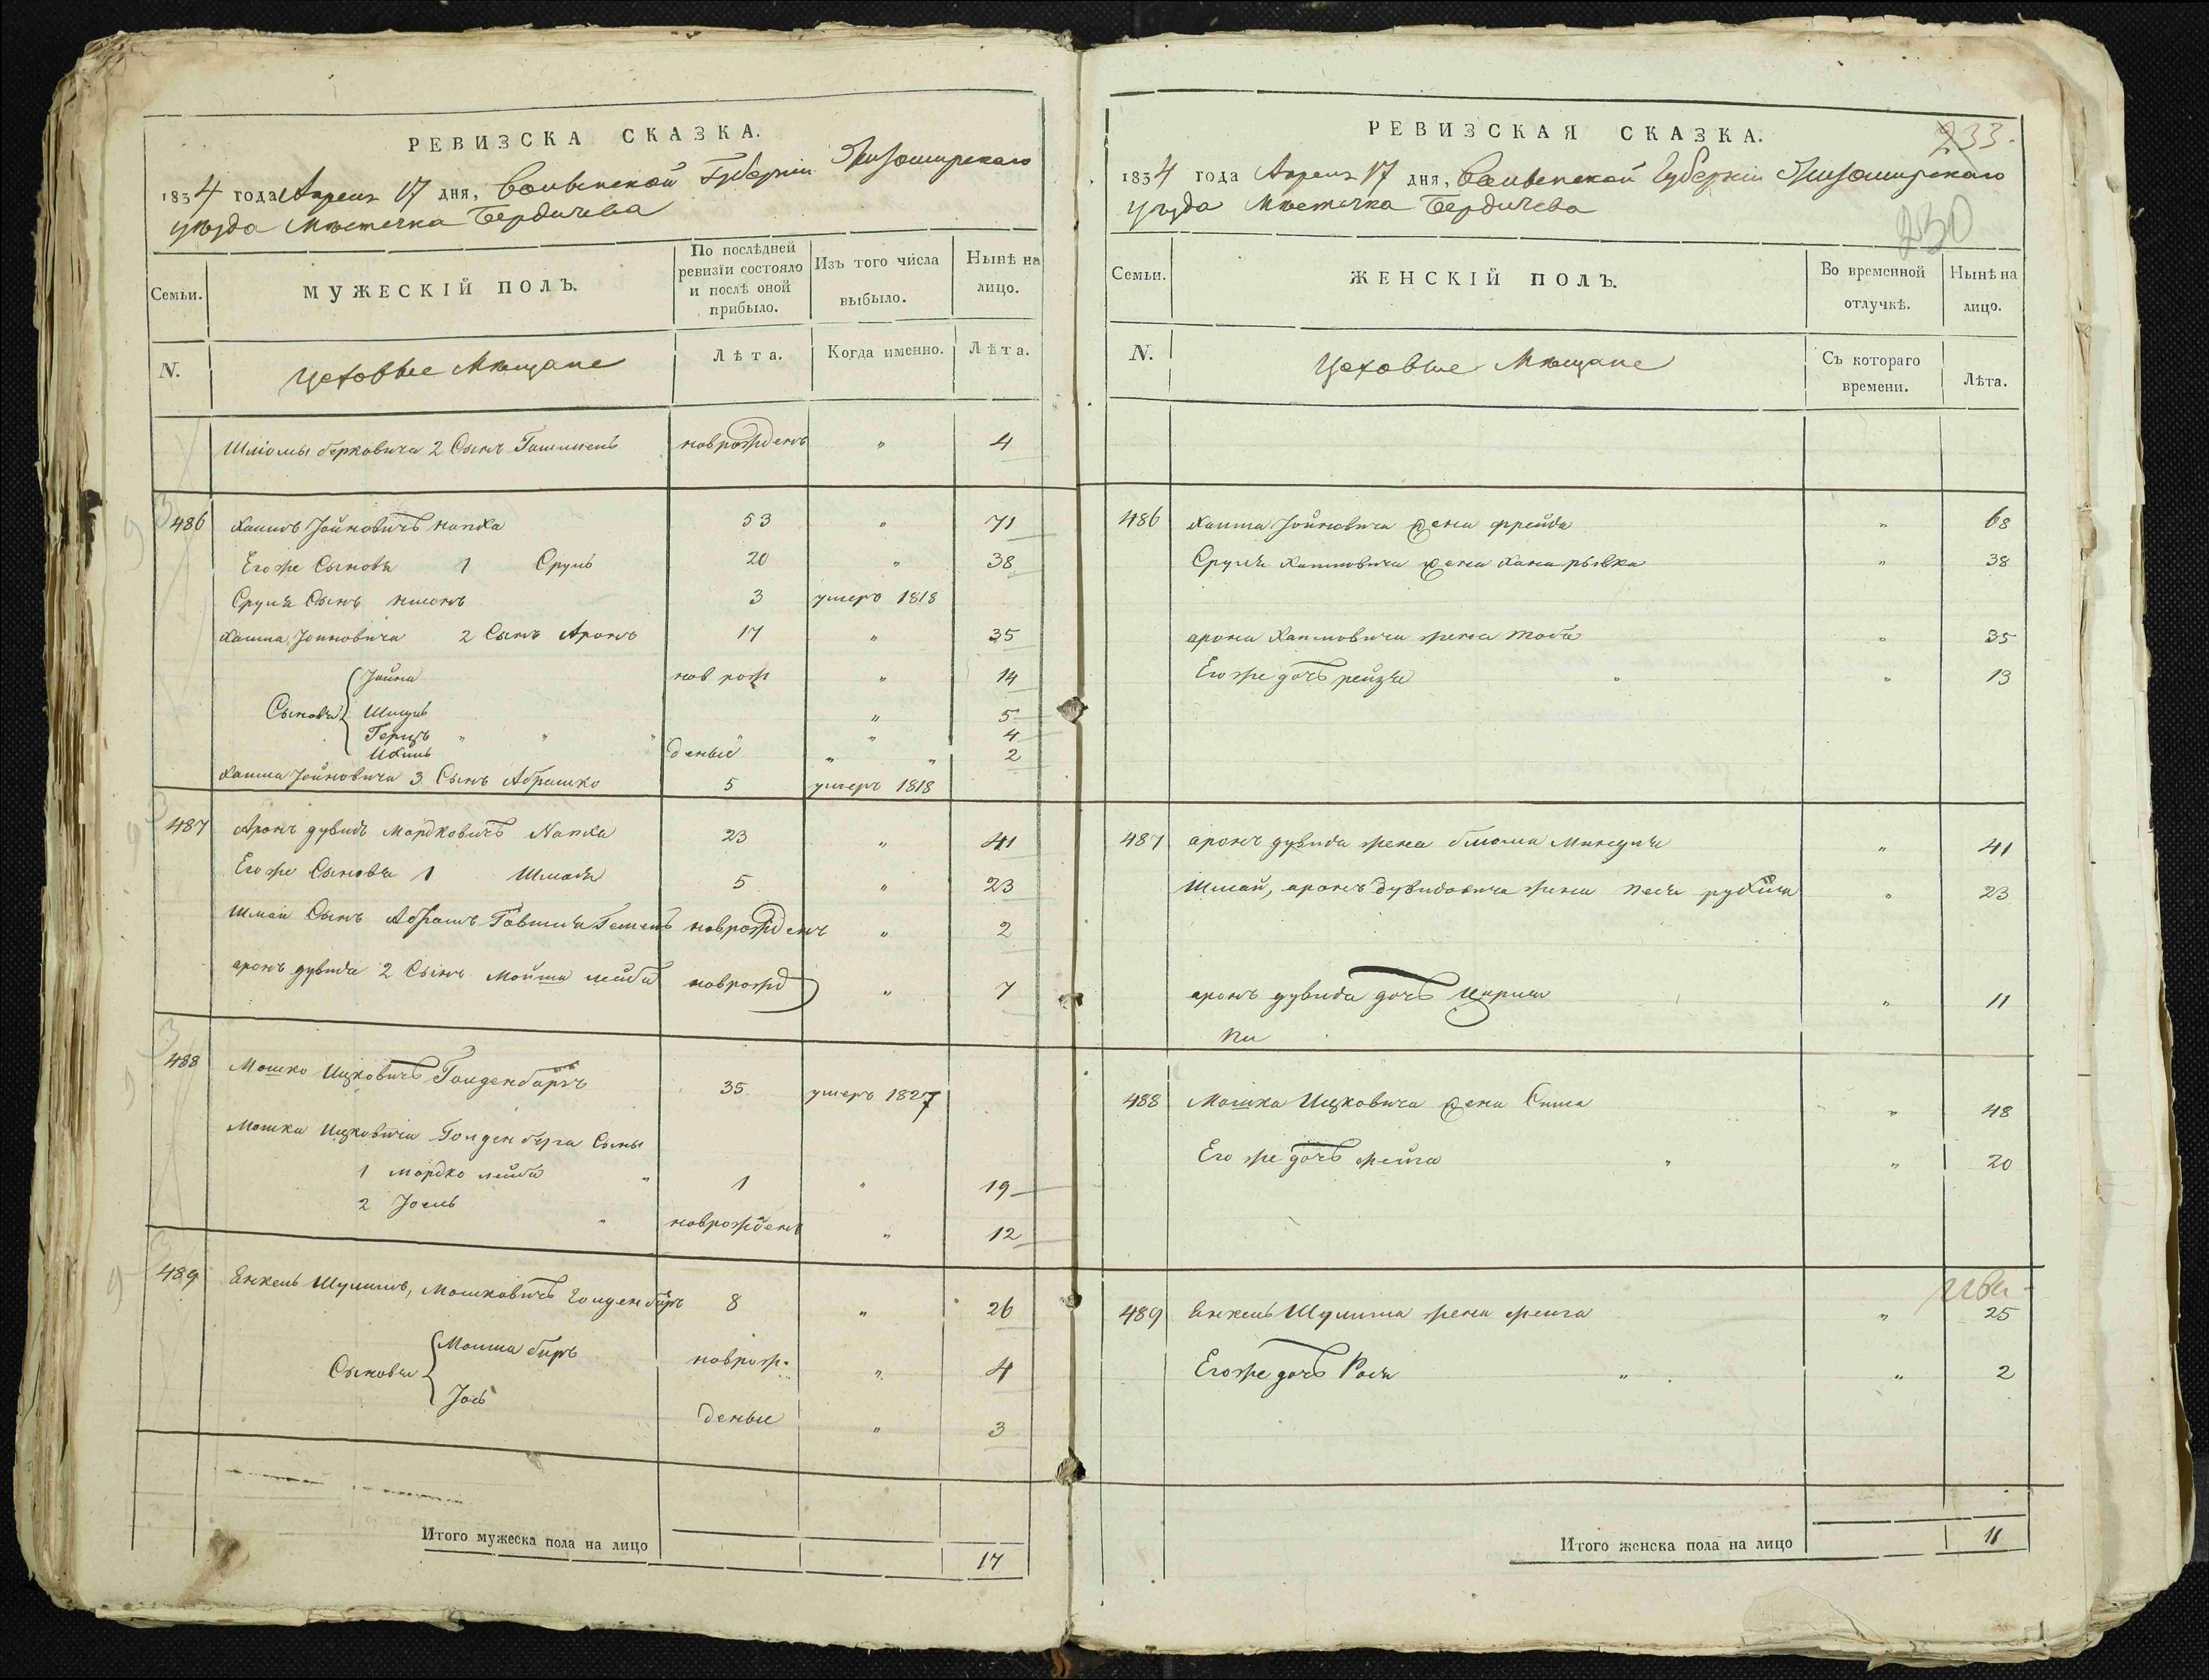 РЕВИЗСКА СКАЗКА.
1834 года Апреля 17 дня, Волынской Губерніи Житомирскаго
уѣзда Мѣстечка Бердичева
Семьи.
МУЖЕСКІЙ ПОЛЪ.
По послѣдней
ревизіи состояло
и послѣ оной
прибыло.
Изъ того числа
выбыло.
Нынѣ на
лицо.
N.
Цеховые Мѣщане
Лѣта.
Когда именно.
Лѣта.
Шліомы берковича 2 Сынъ новрожденъ " 4
486 Хаимъ Іойновичъ 53 " 71
Егоже Сыновья 1 Сруль 20 " 38
Сруля Сынъ 3 умеръ 1818
Хаима Іойновича 2 Сынъ Аронъ 17 " 35
Іойна нов рож " 14
Сыновья Шмуль " 5
Герцъ " " " " 4
деные " " 2
Хаима Іойновича 3 Сынъ Абрашко 5 умеръ 1818
487 Аронъ дувидъ Мордковичъ 23 " 41
Егоже Сыновья 1 Шмая 5 " 23
Шмаи Сынъ Абрамъ новрожденъ " 2
аронъ дувида 2 Сынъ Мойша лейба новрожд " 7
488 Мошко Ицковичъ Голденбергъ 35 умеръ 1827
Мошка Ицковича Голденберга Сыны
1 Мордко лейба " 1 " 19
2 Іосль " новрожденъ " 12
489 Янкель Шулимъ, Мошковичъ Голденберъ 8 " 26
Мошка беръ новрож. " 4
Сыновья
Іось деные " 3
Итого мужеска пола на лицо
17
РЕВИЗСКАЯ СКАЗКА.
233.
1834 года Апреля 17 дня, Волынской Губерніи Житомирскаго
уѣзда Мѣстечка Бердичева
230
Семьи.
ЖЕНСКІЙ ПОЛЪ.
Во временной
отлучкѣ.
Нынѣ на
лицо.
N.
Цеховые Мѣщане
Съ котораго
времени.
Лѣта.
486 Хаима Іойновича жена фрейда " 68
Сруля Хаимовича жена Хана рывка " 38
арона Хаимовича жена Тоба " 35
Егоже дочь рейзя " " 13
487 аронъ дувида жена блюма " 41
Шмаи, аронъ дувидовича жена песя рухля " 23
аронъ дувида дочь " 11
488 Мошка Ицковича жена Сима " 48
Его же дочь фейга " " 20
489 Янкель Шулима жена фейга " 25
Егоже дочь Рося " " 2
Итого женска пола на лицо
11